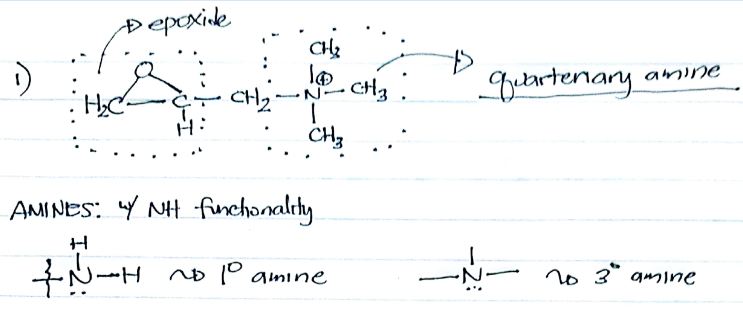 epoxide
1)
O
CH3
H2C C CH2 N CH3
⊕
H
CH3
quartenary amine
AMINES: w/ NH functionality
H
N H 1° amine
N 3° amine